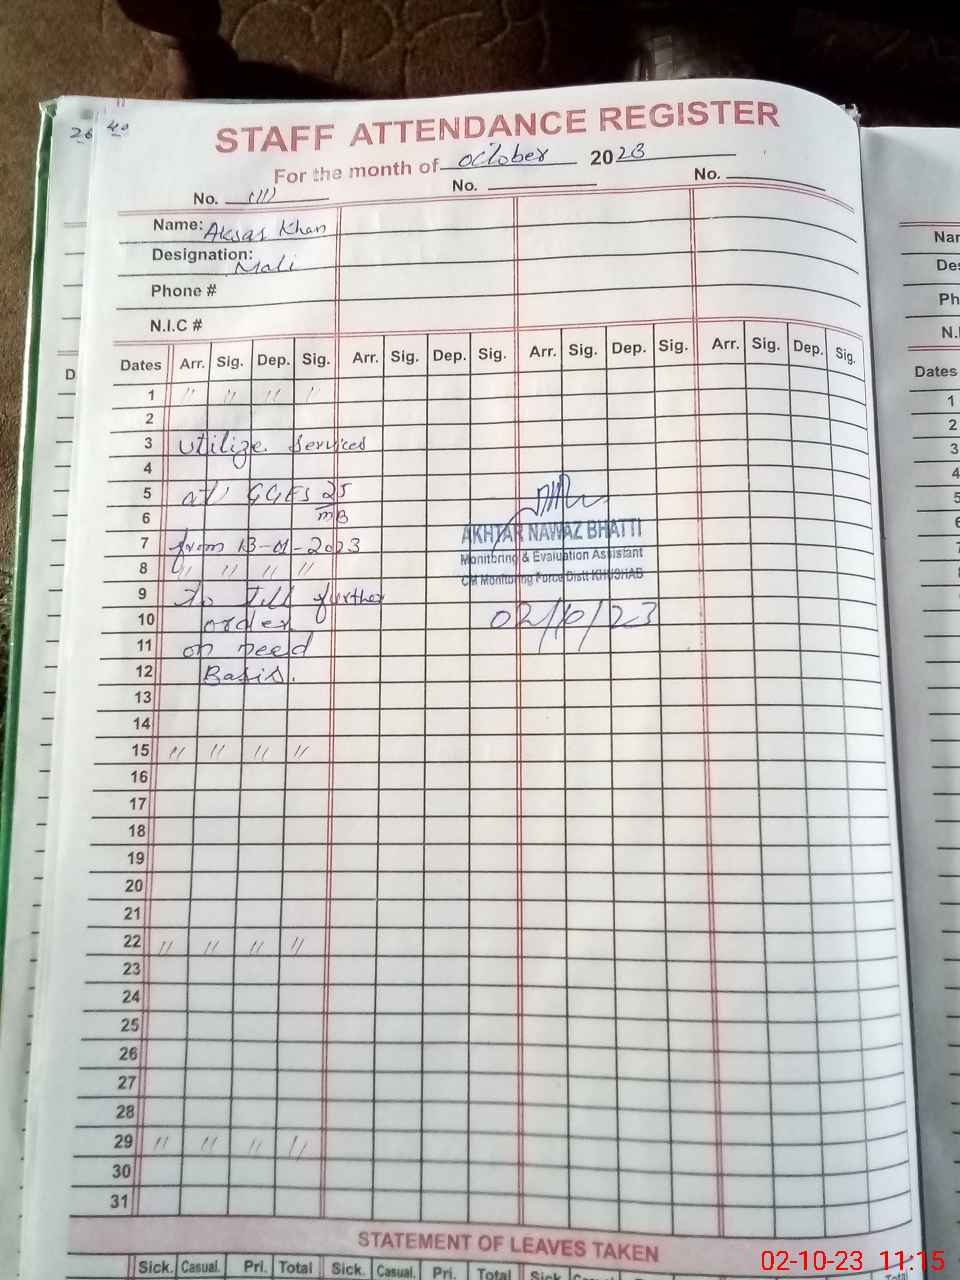 26 40
STAFF ATTENDANCE REGISTER
For the month of October 2023
No. (111) No. No.
Name: Aksar Khan
Designation: Mali
Phone #
N.I.C #
Dates Arr. Sig. Dep. Sig. Arr. Sig. Dep. Sig. Arr. Sig. Dep. Sig. Arr. Sig. Dep. Sig.
1 " " " "
2
3 utilize services
4
5 at GGES 25
6 MB
7 from 13-01-2023
8 " " " "
9 To till further
10 order
11 on need
12 Basis.
13
14
15 " " " "
16
17
18
19
20
21
22 " " " "
23
24
25
26
27
28
29 " " " "
30
31
AKHTAR NAWAZ BHATTI
Monitoring & Evaluation Assistant
CM Monitoring Force Distt KHUSHAB
02/10/23
STATEMENT OF LEAVES TAKEN
Sick. Casual. Pri. Total Sick. Casual. Pri. Total Sick
Dates
1
2
3
4
5
6
7
8
9
10
11
12
13
02-10-23 11:15